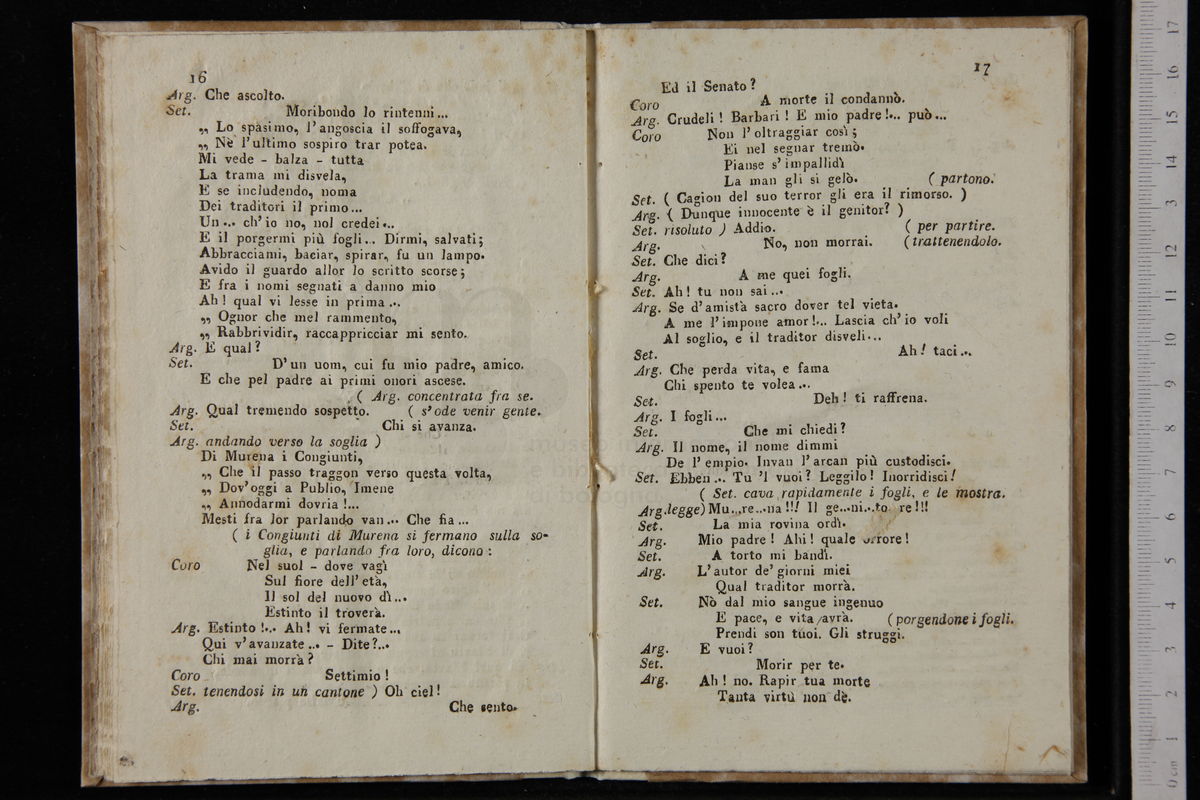 16
Arg. Che ascolto.
Set. Moribondo lo rintenni...
„ Lo spasimo, l'angoscia il soffogava,
„ Nè l'ultimo sospiro trar potea.
Mi vede - balza - tutta
La trama mi disvela,
E se includendo, noma
Dei traditori il primo...
Un... ch'io no, nol credei...
E il porgermi più fogli.. Dirmi, salvati;
Abbracciami, baciar, spirar, fu un lampo.
Avido il guardo allor lo scritto scorse;
E fra i nomi segnati a danno mio
Ah! qual vi lesse in prima...
„ Ognor che mel rammento,
„ Rabbrividir, raccappricciar mi sento.
Arg. E qual?
Set. D'un uom, cui fu mio padre, amico.
E che pel padre ai primi onori ascese.
( Arg. concentrata fra se.
Arg. Qual tremendo sospetto. ( s'ode venir gente.
Set. Chi si avanza.
Arg. andando verso la soglia )
Di Murena i Congiunti,
„ Che il passo traggon verso questa volta,
„ Dov'oggi a Publio, Imene
„ Annodarmi dovria!...
Mesti fra lor parlando van... Che fia...
( i Congiunti di Murena si fermano sulla so-
glia, e parlando fra loro, dicono:
Coro Nel suol - dove vagì
Sul fiore dell'età,
Il sol del nuovo dì...
Estinto il troverà.
Arg. Estinto!... Ah! vi fermate...
Qui v'avanzate... - Dite?...
Chi mai morrà?
Coro Settimio!
Set. tenendosi in un cantone ) Oh ciel!
Arg. Che sento.
17
Ed il Senato?
Coro A morte il condannò.
Arg. Crudeli! Barbari! E mio padre!... può...
Coro Non l'oltraggiar così;
Ei nel segnar tremò.
Pianse s'impallidì
La man gli si gelò. ( partono.
Set. ( Cagion del suo terror gli era il rimorso. )
Arg. ( Dunque innocente è il genitor? )
Set. risoluto ) Addio. ( per partire.
Arg. No, non morrai. (trattenendolo.
Set. Che dici?
Arg. A me quei fogli.
Set. Ah! tu non sai...
Arg. Se d'amistà sacro dover tel vieta.
A me l'impone amor!... Lascia ch'io voli
Al soglio, e il traditor disveli...
Set. Ah! taci...
Arg. Che perda vita, e fama
Chi spento te volea...
Set. Deh! ti raffrena.
Arg. I fogli...
Set. Che mi chiedi?
Arg. Il nome, il nome dimmi
De l'empio. Invan l'arcan più custodisci.
Set. Ebben... Tu 'l vuoi? Leggilo! Inorridisci!
( Set. cava rapidamente i fogli, e le mostra.
Arg.legge) Mu...re...na!!! Il ge...ni...to re!!!
Set. La mia rovina ordì.
Arg. Mio padre! Ahi! quale orrore!
Set. A torto mi bandì.
Arg. L'autor de' giorni miei
Qual traditor morrà.
Set. Nò dal mio sangue ingenuo
E pace, e vita avrà. (porgendone i fogli.
Prendi son tuoi. Gli struggi.
Arg. E vuoi?
Set. Morir per te.
Arg. Ah! no. Rapir tua morte
Tanta virtù non dè.